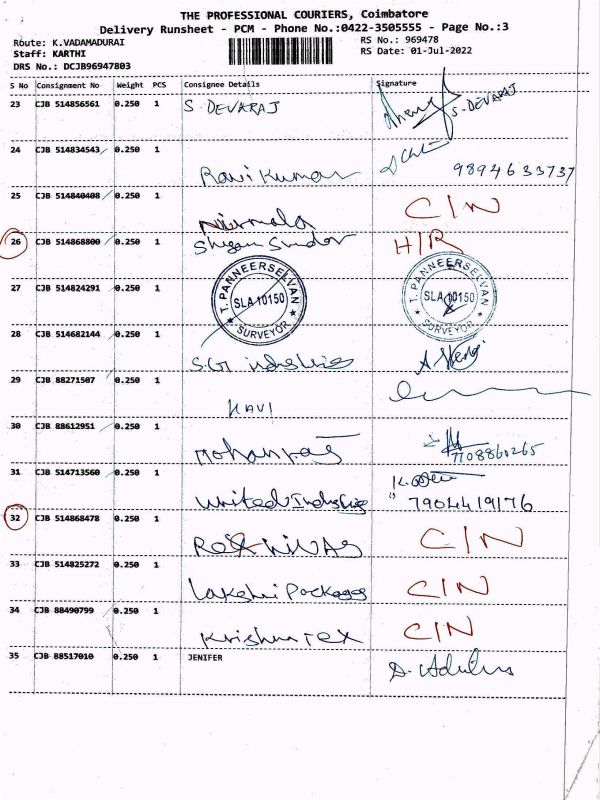 THE PROFESSIONAL COURIERS, Coimbatore
Delivery Runsheet - PCM - Phone No.:0422-3505555 - Page No.:3
Route: K.VADAMADURAI RS No.: 969478
Staff: KARTHI RS Date: 01-Jul-2022
DRS No.: DCJB96947803
S No Consignment No Weight PCS Consignee Details Signature
23 CJB 514856561 0.250 1 S. DEVARAJ S. DEVARAJ
24 CJB 514834543 0.250 1 Ravi Kumar 9894633737
25 CJB 514840408 0.250 1 Nirmala C/N
26 CJB 514868800 0.250 1 Shyam Sundar H/R
27 CJB 514824291 0.250 1 T. PANNEERSELVAN SLA 10150 SURVEYOR T. PANNEERSELVAN SLA 10150 SURVEYOR
28 CJB 514682144 0.250 1 S.G industries
29 CJB 88271507 0.250 1 KAVI
30 CJB 88612951 0.250 1 Mohanraj 7708860265
31 CJB 514713560 0.250 1 United Industries 7904419176
32 CJB 514868478 0.250 1 C/N
33 CJB 514825272 0.250 1 Lakshmi Packages C/N
34 CJB 88490799 0.250 1 Krishna Tex C/N
35 CJB 88517010 0.250 1 JENIFER